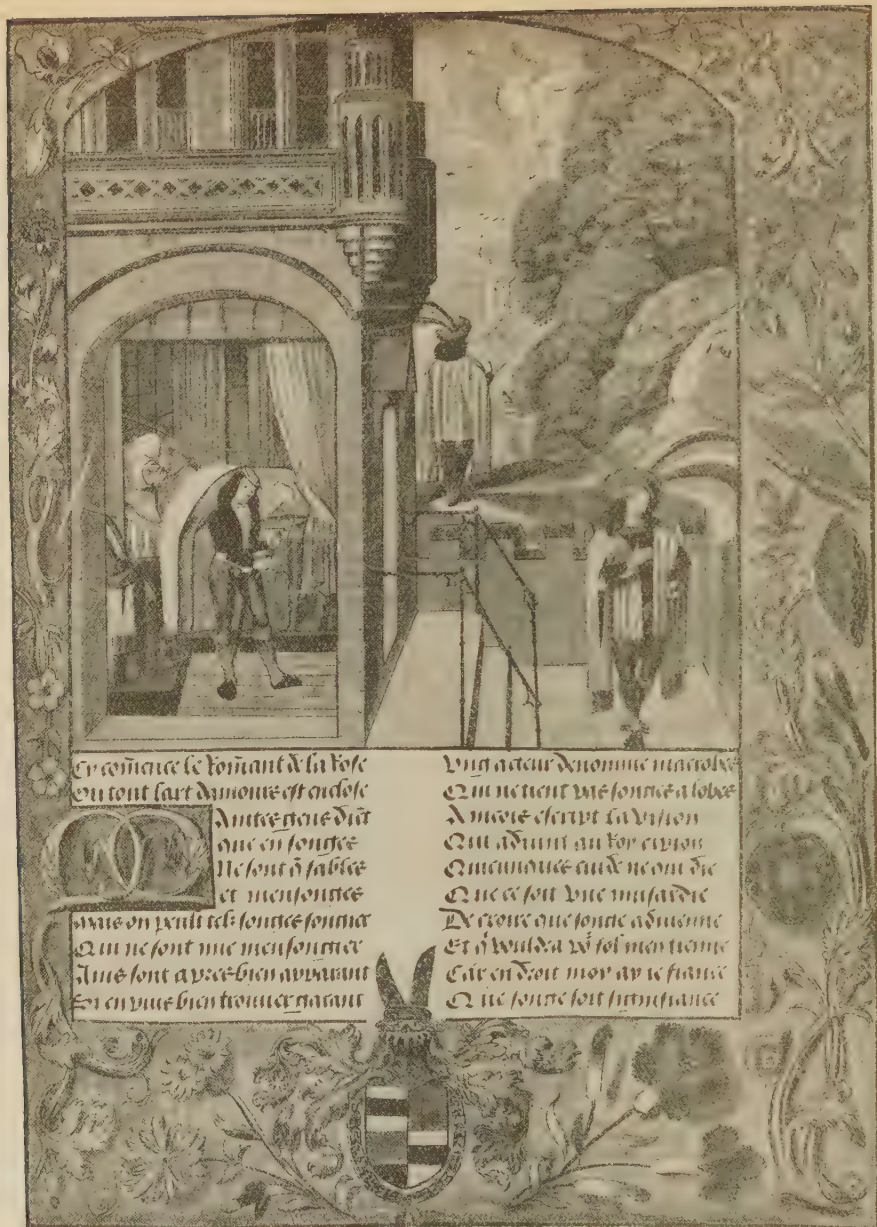 Cy cõmence le Rom̃ant de la Rose
Ou tout lart damours est enclose
Maintes gens diẽt
que en songes
Ne sont q̃ fables
et mensonges
Mais on peult telz songes songier
Qui ne sont mie mensongier
Ains sont apres bien apparant
Si en puis bien trouuer garant
Vng acteur denomme macrobes
Qui ne tient pas songes a lobes
Ancois escript la vision
Qui aduint au Roy cipion
Quiconques cuide ne qui die
Que ce soit vne musardie
De croire que songe aduienne
Et q̃ vouldra po² fol men tienne
Car en droit moy ay ie fiance
Que songe soit signifiance